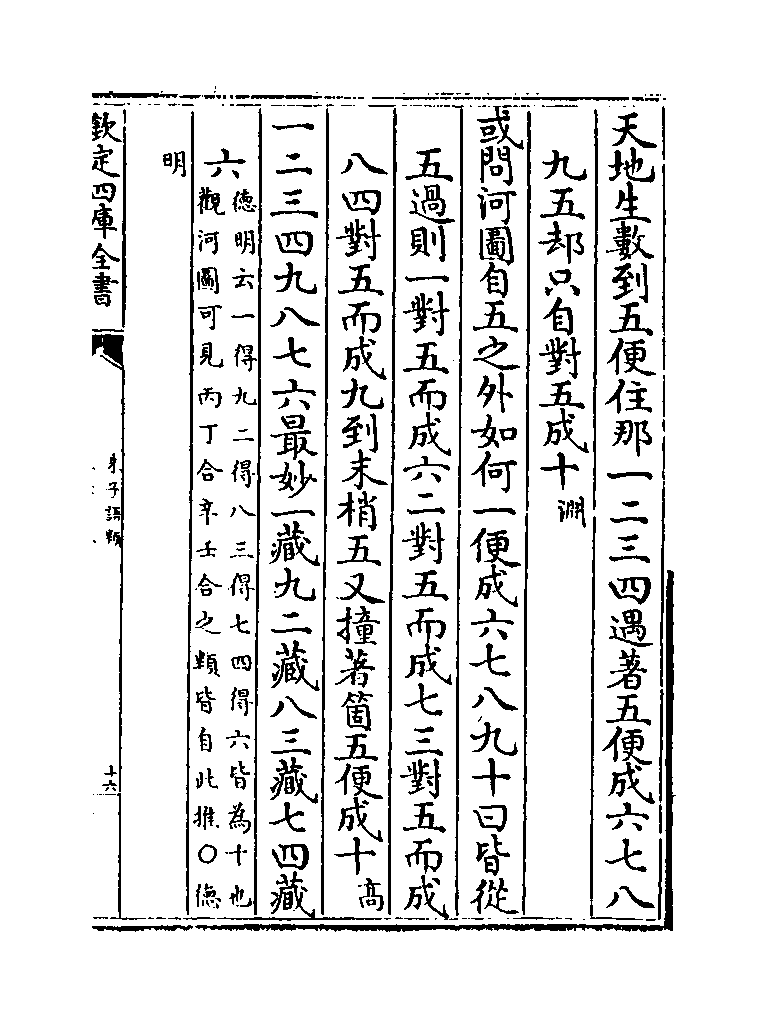 天地生數到五便住那一二三四遇著五便成六七八
九五却只自對五成十淵
或問河圖自五之外如何一便成六七八九十曰皆從
五過則一對五而成六二對五而成七三對五而成
八四對五而成九到末梢五又撞著箇五便成十高
一二三四九八七六最妙一藏九二藏八三藏七四藏
六德明云一得九二得八三得七四得六皆為十也
觀河圖可見丙丁合辛壬合之類皆自此推〇德
明
欽定四庫全書
朱子語類
十六